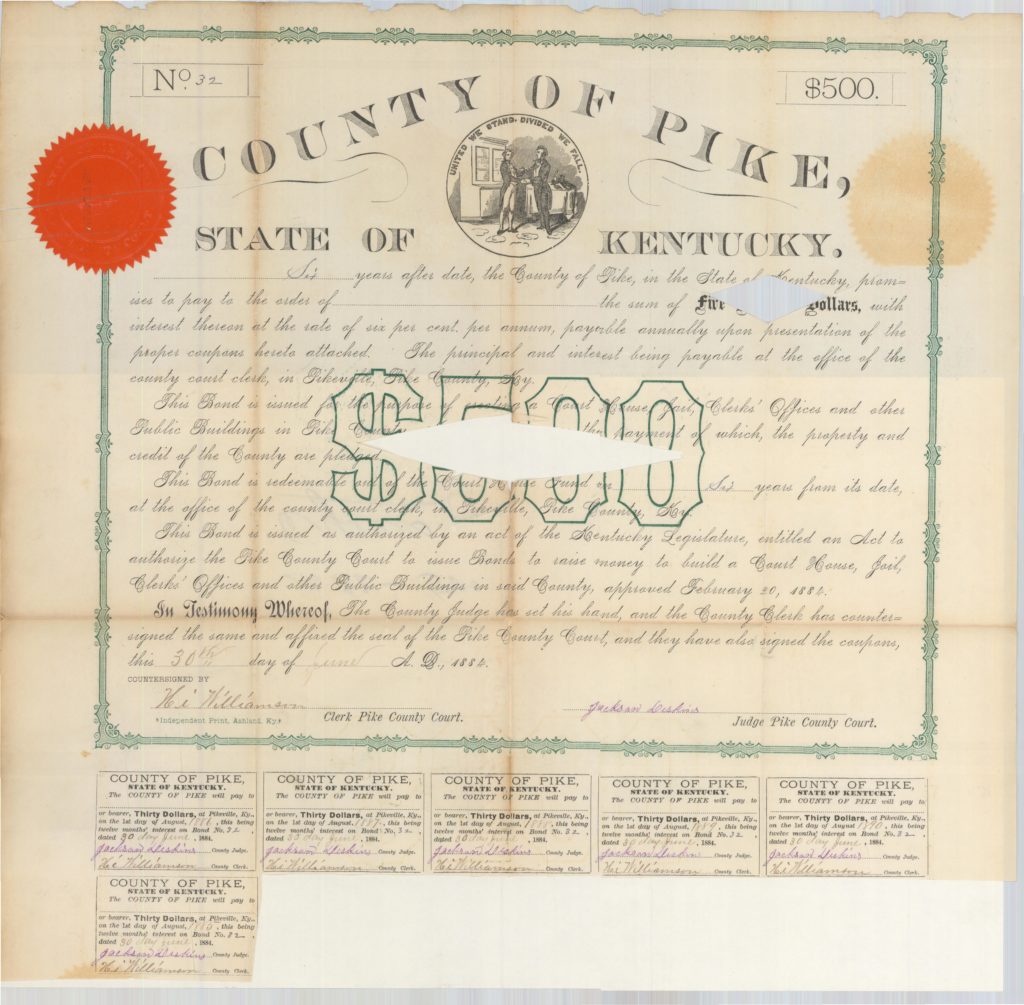 No. 32
$500.
COUNTY OF PIKE,
UNITED WE STAND, DIVIDED WE FALL.
STATE OF KENTUCKY,
Six years after date, the County of Pike, in the State of Kentucky, prom=
ises to pay to the order of the sum of Five Dollars, with
interest thereon at the rate of six per cent. per annum, payable annually upon presentation of the
proper coupons hereto attached. The principal and interest being payable at the office of the
county court clerk, in Pikeville, Pike County, Ky.
$500
This Bond is issued for the purpose of erecting a Court House, Jail, Clerks' Offices and other
Public Buildings in Pike County the payment of which, the property and
credit of the County are pledged.
This Bond is redeemable out of the Court House Fund in Six years from its date,
at the office of the county court clerk, in Pikeville, Pike County, Ky.
This Bond is issued as authorized by an act of the Kentucky Legislature, entitled an Act to
authorize the Pike County Court to issue Bonds to raise money to build a Court House, Jail,
Clerks' Offices and other Public Buildings in said County, approved February 20, 1884.
In Testimony Whereof, The County Judge has set his hand, and the County Clerk has counter=
signed the same and affixed the seal of the Pike County Court, and they have also signed the coupons,
this 30th day of June A. D., 1884.
COUNTERSIGNED BY
Hi Williamson
Clerk Pike County Court.
Jackson Deskins
Judge Pike County Court.
*Independent Print, Ashland, Ky.*
COUNTY OF PIKE,
STATE OF KENTUCKY.
The COUNTY OF PIKE will pay to
or bearer, Thirty Dollars, at Pikeville, Ky.,
on the 1st day of August, 1886, this being
twelve months' interest on Bond No. 32,
dated 30 day June, 1884.
Jackson Deskins County Judge.
Hi Williamson County Clerk.
COUNTY OF PIKE,
STATE OF KENTUCKY.
The COUNTY OF PIKE will pay to
or bearer, Thirty Dollars, at Pikeville, Ky.,
on the 1st day of August, 1887, this being
twelve months' interest on Bond No. 32,
dated 30 day June, 1884.
Jackson Deskins County Judge.
Hi Williamson County Clerk.
COUNTY OF PIKE,
STATE OF KENTUCKY.
The COUNTY OF PIKE will pay to
or bearer, Thirty Dollars, at Pikeville, Ky.,
on the 1st day of August, 1888, this being
twelve months' interest on Bond No. 32,
dated 30 day June, 1884.
Jackson Deskins County Judge.
Hi Williamson County Clerk.
COUNTY OF PIKE,
STATE OF KENTUCKY.
The COUNTY OF PIKE will pay to
or bearer, Thirty Dollars, at Pikeville, Ky.,
on the 1st day of August, 1889, this being
twelve months' interest on Bond No. 32,
dated 30 day June, 1884.
Jackson Deskins County Judge.
Hi Williamson County Clerk.
COUNTY OF PIKE,
STATE OF KENTUCKY.
The COUNTY OF PIKE will pay to
or bearer, Thirty Dollars, at Pikeville, Ky.,
on the 1st day of August, 1890, this being
twelve months' interest on Bond No. 32,
dated 30 day June, 1884.
Jackson Deskins County Judge.
Hi Williamson County Clerk.
COUNTY OF PIKE,
STATE OF KENTUCKY.
The COUNTY OF PIKE will pay to
or bearer, Thirty Dollars, at Pikeville, Ky.,
on the 1st day of August, this being
twelve months' interest on Bond No. 32,
dated 30 day June, 1884.
Jackson Deskins County Judge.
Hi Williamson County Clerk.